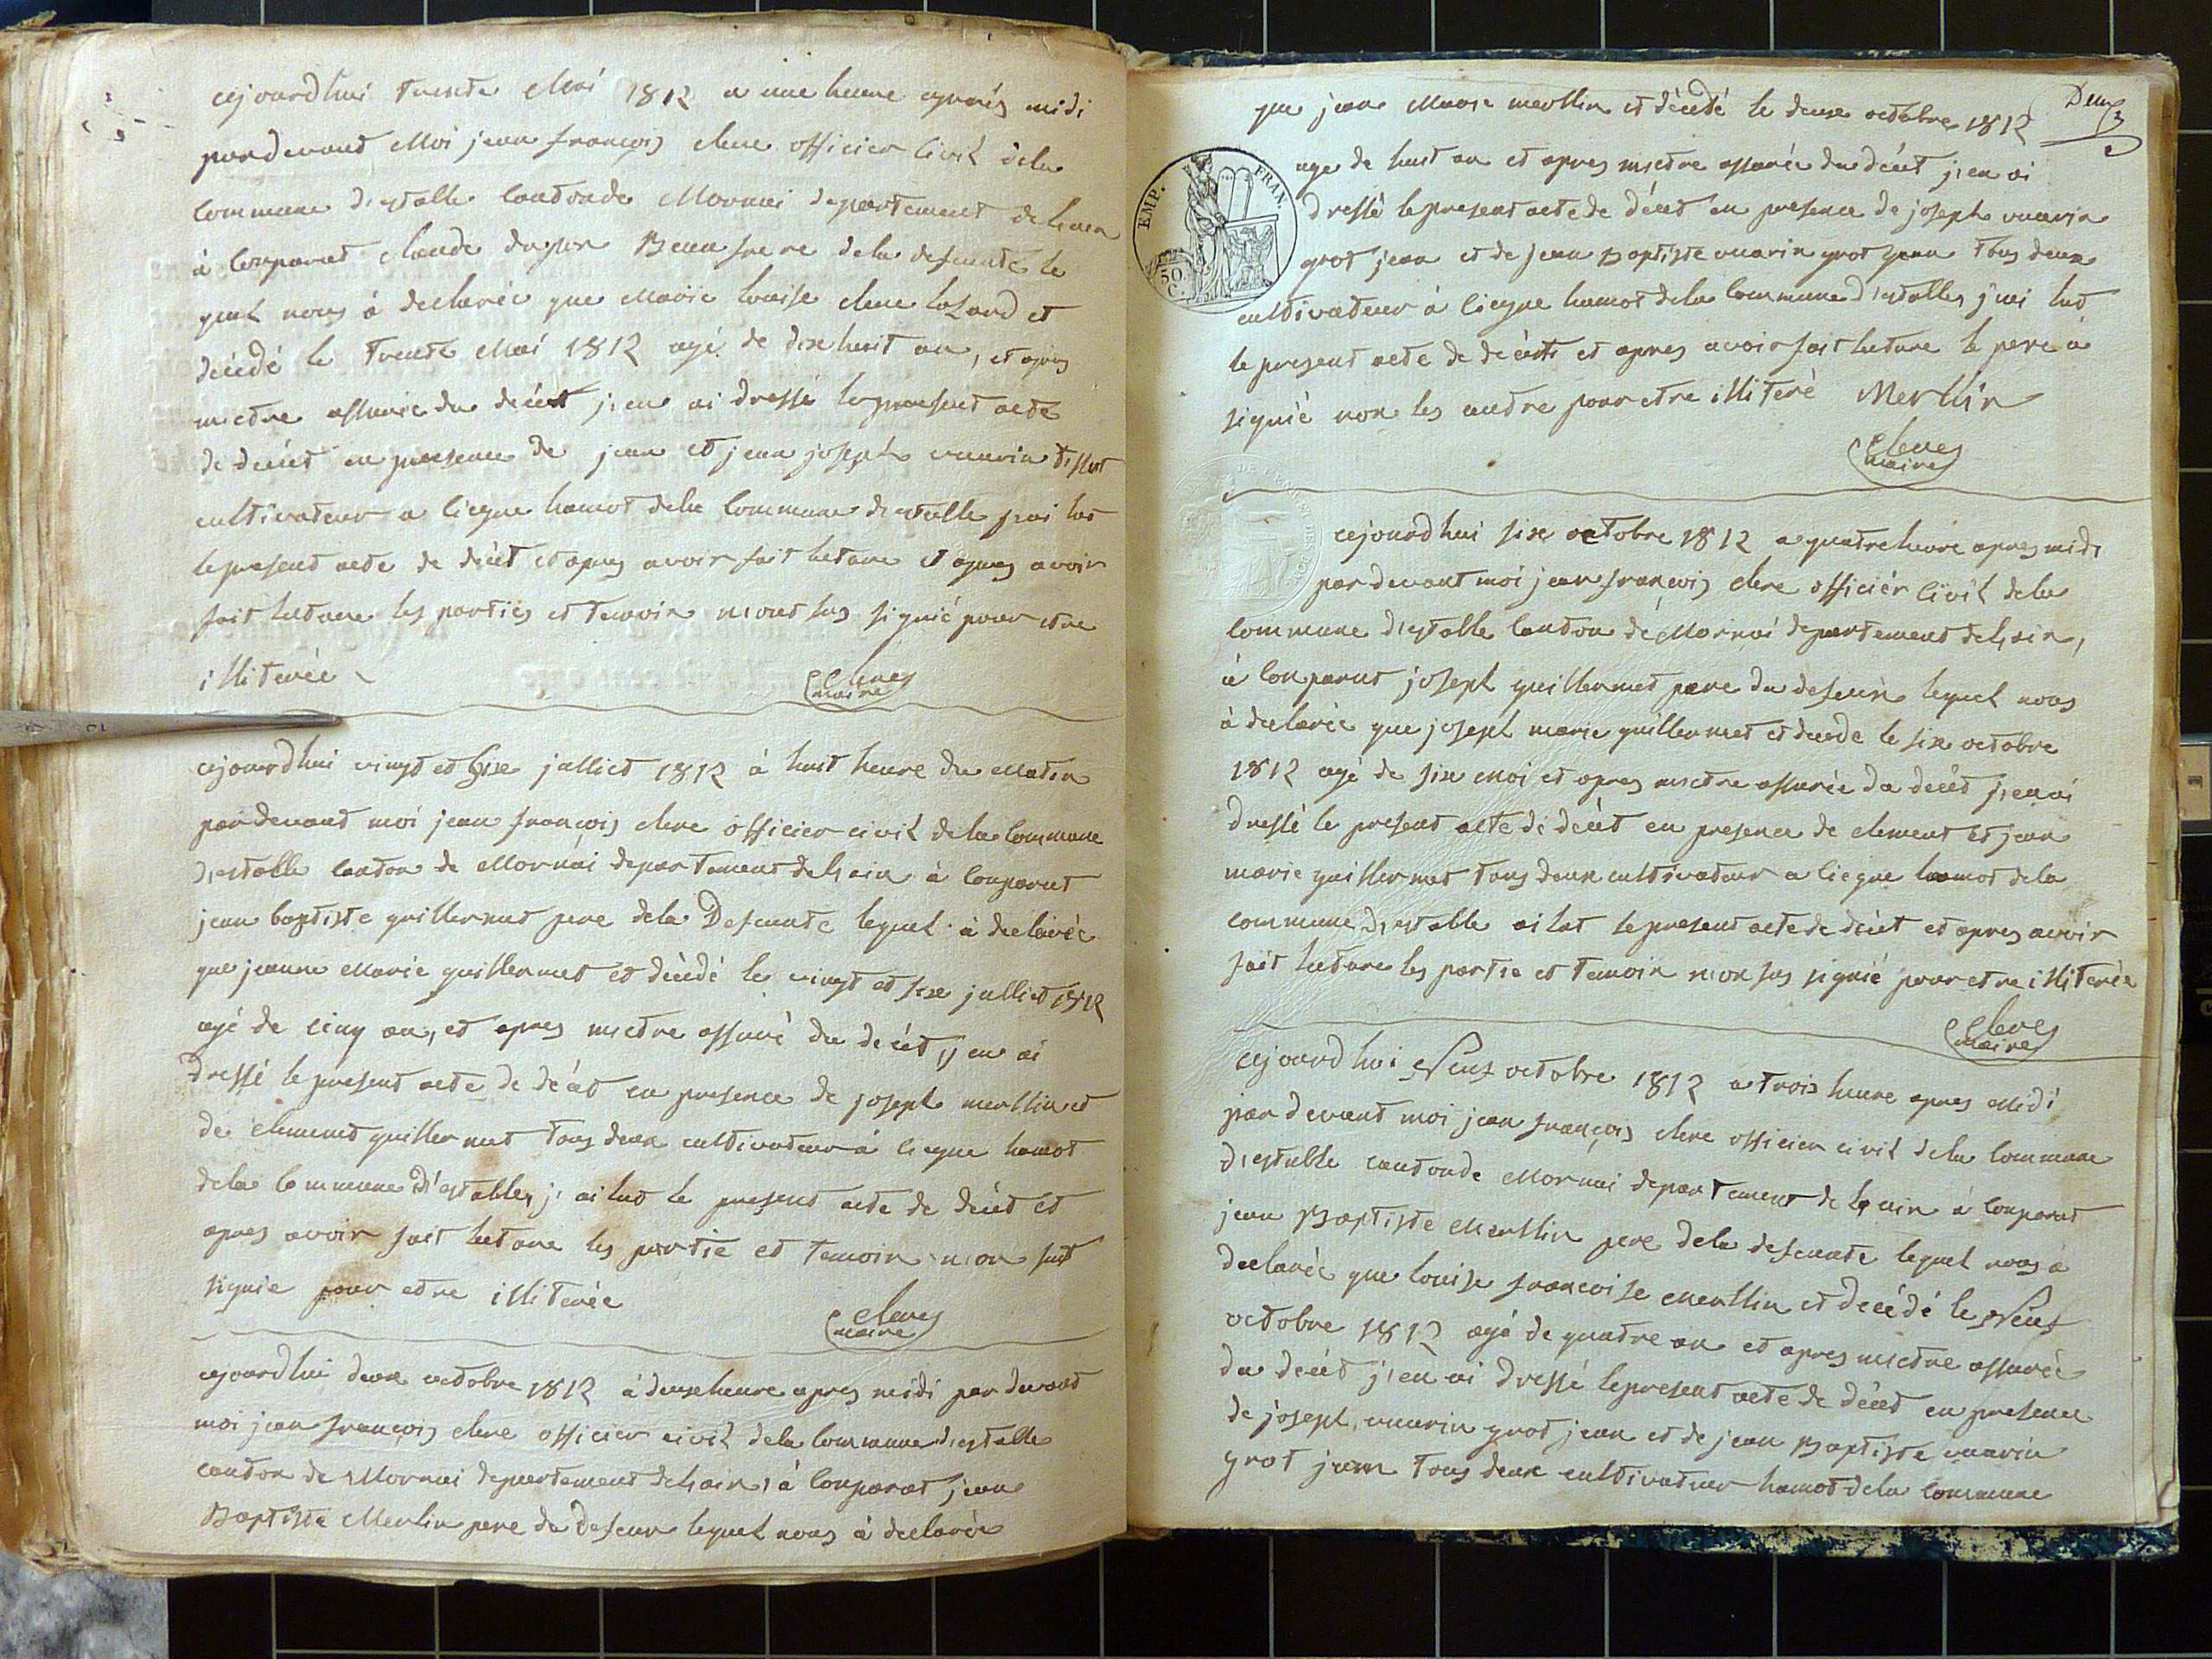 cejourdhui trente Mai 1812 a une heure aprés midi
pardevant Moi jean françois clerc officier Civil dela
Commune d'establle Canton de Mornai departement de lain
à Comparut claude dujur Beau frere dela defunte le
quel nous à declarée que Marie louise clerc lazard et
décédé le Trente Mai 1812 agé de dix huit an, et apres
mectre assurée du décét j'en ai dressé le present acte
de decét en presence de jean et jean joseph vuarin tissot
cultivateur a liegne hamot dela Commune d'establle j'ai lut
le present acte de décét et apres avoir fait lecture et apres avoir
fait lecture les parties et temoin n'iont sus signié pour etre
illiterée
clerc
maire
cejourdhui vingt et sixe julliet 1812 à huit heure du Matin
pardevant moi jean françois clerc officier civil dela Commune
d'establle canton de Mornai departement de lain à Comparut
jean baptiste guillermet pere dela Defunte lequel à declarée
que jeanne Marie guillermet et décédé le vingt et sixe julliet 1812
agé de cinq an, et apres mectre assuré du decét, j'en ai
dressé le present acte de décét en presence de joseph merllin et
de clement guillermet tous deux cultivateur à liegne hamot
dela Commune d'establle, j'ai lut le present acte de décét et
apres avoir fait lecture les partie et temoin n'ion sut
signie pour etre illiterée
clerc
maire
cejourdhui deux octobre 1812 à deux heure apres midi par devant
moi jean françois clerc officier civil dela Commune d'establle
canton de Mornai departement de lain, à Comparut jean
Baptiste Merlin pere du defeun lequel nous à declarée
Deux
que jean Marie merllin et décédé le deux octobre 1812
age de huit an et apres mectre assurée du décét j'en ai
dressé le present acte de décét en presence de joseph vuarin
grot jean et de jean Baptiste vuarin grot jean tous deux
cultivateur à liegne hamot dela Commune d'establle, j'ai lut
le present acte de décéts et apres avoir fait lecture le pere à
signié non les autre pour etre illiteré Merllin
clerc
maire
EMP. FRAN.
50
C.
cejourdhui sixe octobre 1812 a quatre heure apres midi
par devant moi jean françois clerc officiér Civil dela
Commune d'establle Canton dé Mornai departement de lain,
à Comparut joseph guillermet pere du defeun lequel nous
à declarée que joseph marie guillermet et decede le six octobre
1812 agé de six moi et apres mectre assurée du decét j'en ai
dressé le present acte de décét en presence de clement et jean
marie guillermet tous deux cultivateur a liegne hamot dela
commune d'establle ai lut le present acte de décét et apres avoir
fait lecture les partie et temoin n'ion sus signié pour etre illiterée
clerc
maire
cejourd hui Neuf octobre 1812 a trois heure apres Midi
par devant moi jean françois clerc officier civil dela Commune
d'establle canton de Mornai departement de lain à Comparut
jean Baptiste Merllin pere dela defeunte lequel nous à
declarée que louise françoise Merllin et decédé le Neuf
octobre 1812 agé de quatre an et apres mectre assurée
du decét j'en ai dressé le present acte de décét en presence
de joseph vuarin grot jean et de jean Baptiste vuarin
grot jean tous deux cultivateur hamot dela commune